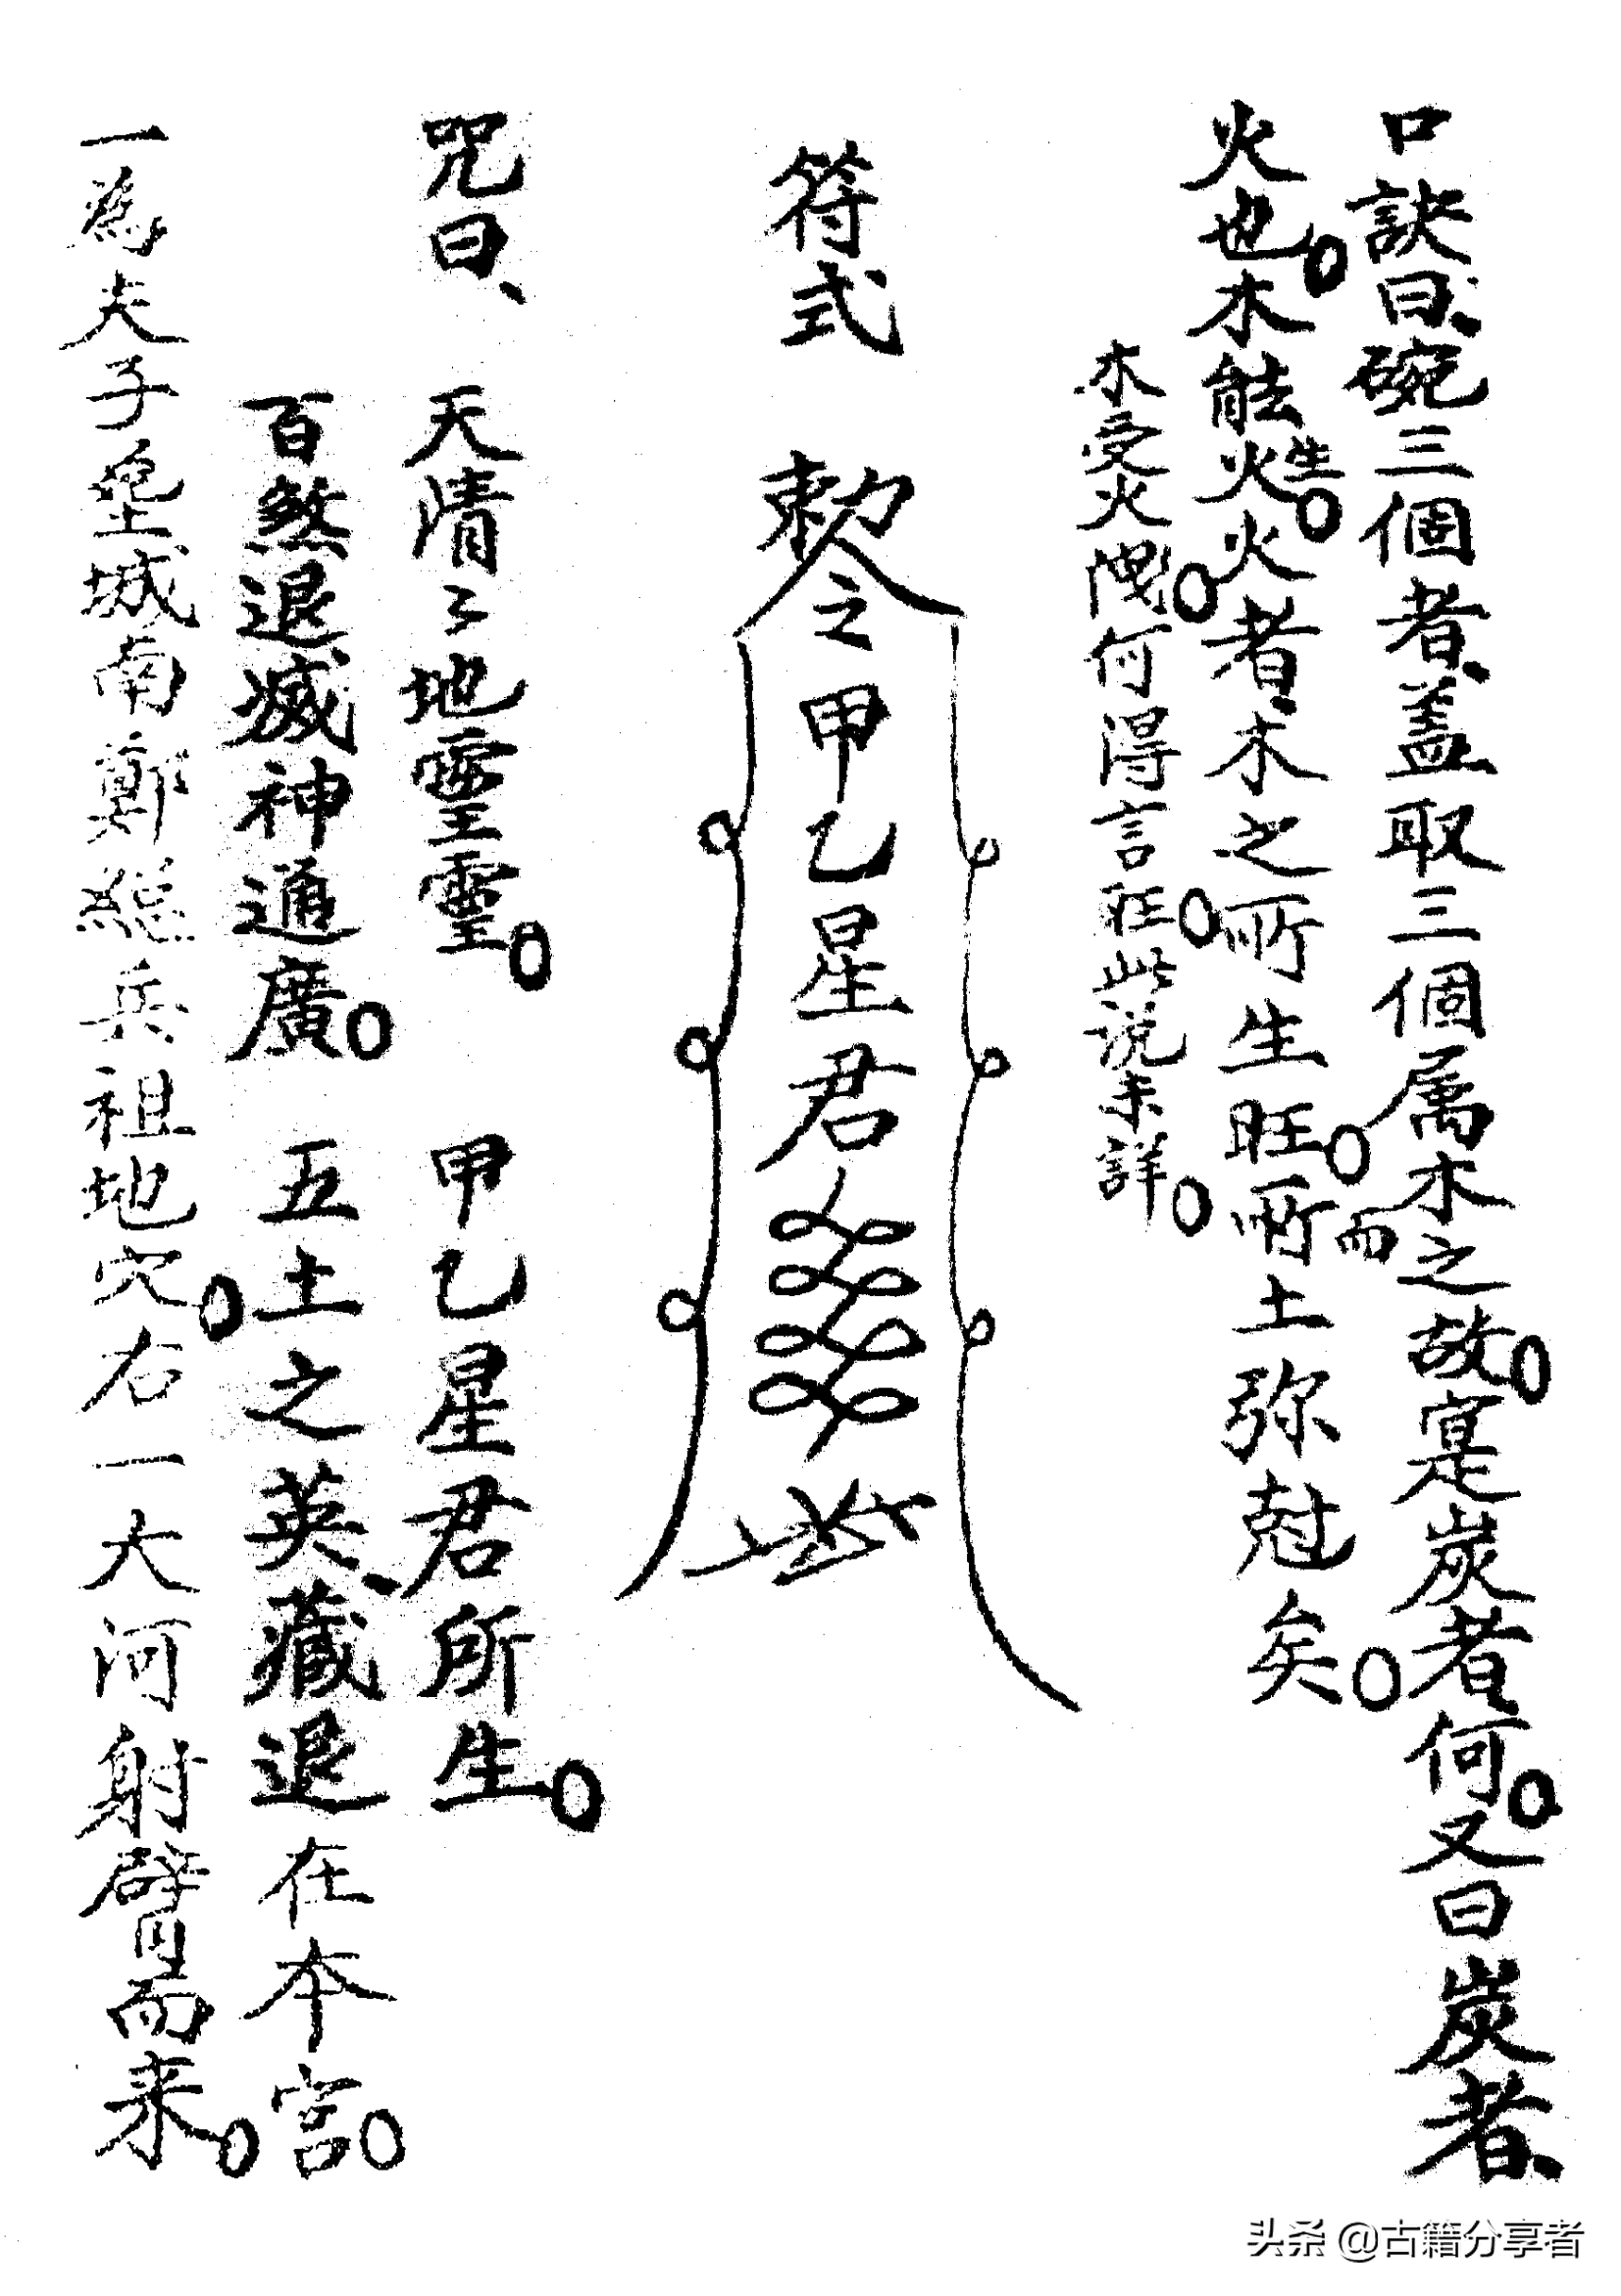 口訣曰、碗三個者、蓋取三個属木之故。寔炭者何。又曰炭者、
火也。木能生火。火者、木之所生旺。而所土弥尅矣。
木受火洩。何得言旺。此说未詳。
符式
敕令之甲乙星君
咒曰、天清〻地靈靈。甲乙星君所生。
百煞退滅神通廣。五土之英、藏退在本宮。
一為夫子塋城南鄭總兵祖地穴。右一大河射臂而来。
头条 @古籍分享者